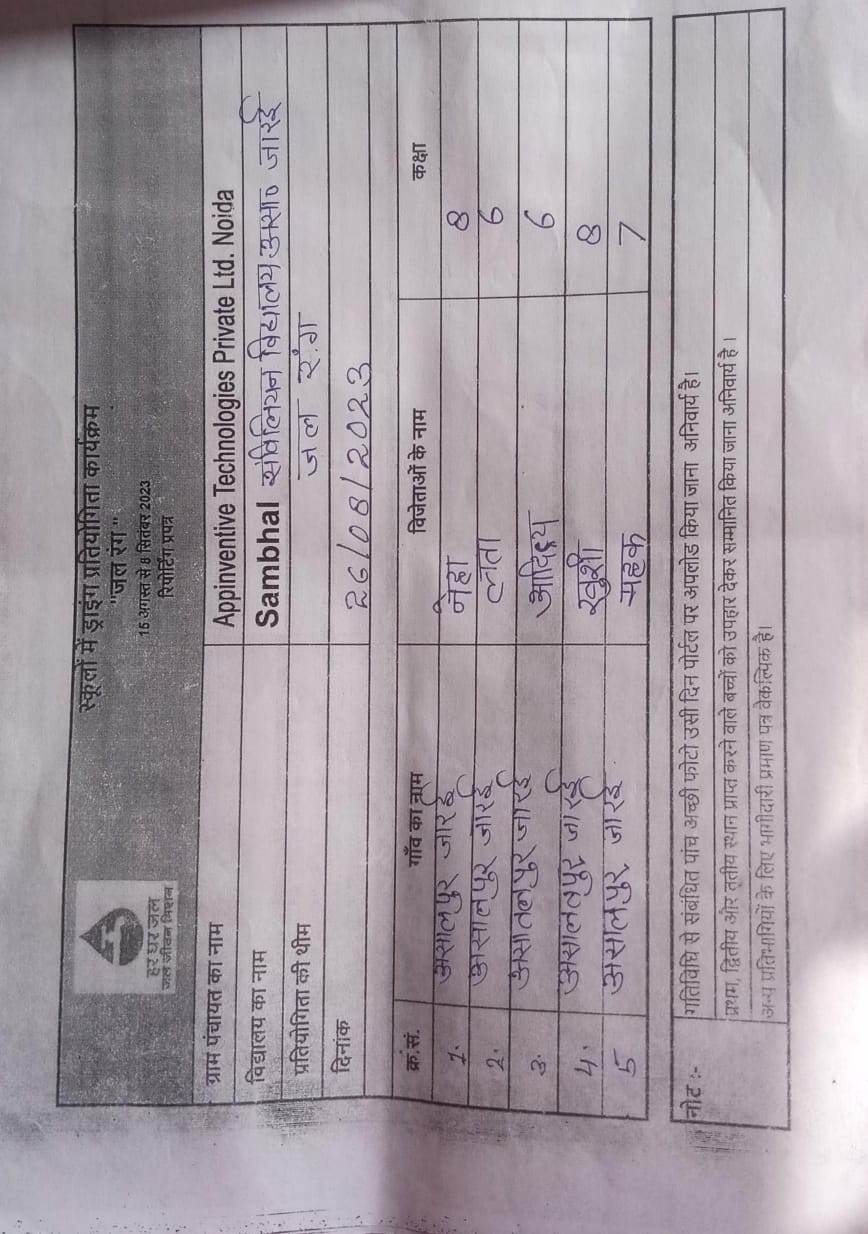 हर घर जल
जल जीवन मिशन
स्कूलों में ड्राइंग प्रतियोगिता कार्यक्रम
"जल रंग"
15 अगस्त से 8 सितंबर 2023
रिपोर्टिंग प्रपत्र
ग्राम पंचायत का नाम Appinventive Technologies Private Ltd. Noida
विद्यालय का नाम Sambhal संविलियन विद्यालय असा० जारई
प्रतियोगिता की थीम जल रंग
दिनांक 26/08/2023
क्रं.सं. गाँव का नाम विजेताओं के नाम कक्षा
1. असालपुर जारई नेहा 8
2. असालपुर जारई लता 6
3. असालतपुर जारई आदित्य 6
4. असालतपुर जारई खुशी 8
5 असालपुर जारई महक 7
नोट :- गतिविधि से संबंधित पांच अच्छी फोटो उसी दिन पोर्टल पर अपलोड किया जाना अनिवार्य है।
प्रथम, द्वितीय और तृतीय स्थान प्राप्त करने वाले बच्चों को उपहार देकर सम्मानित किया जाना अनिवार्य है।
अन्य प्रतिभागियों के लिए भागीदारी प्रमाण पत्र वैकल्पिक है।